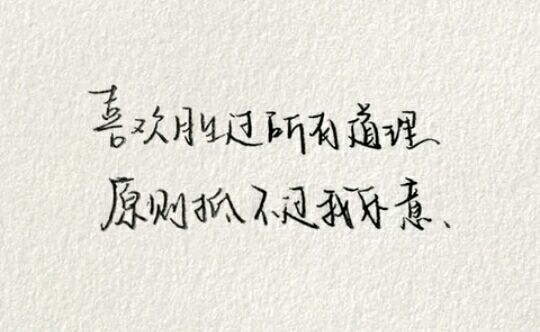 喜欢胜过所有道理
原则抵不过我乐意、